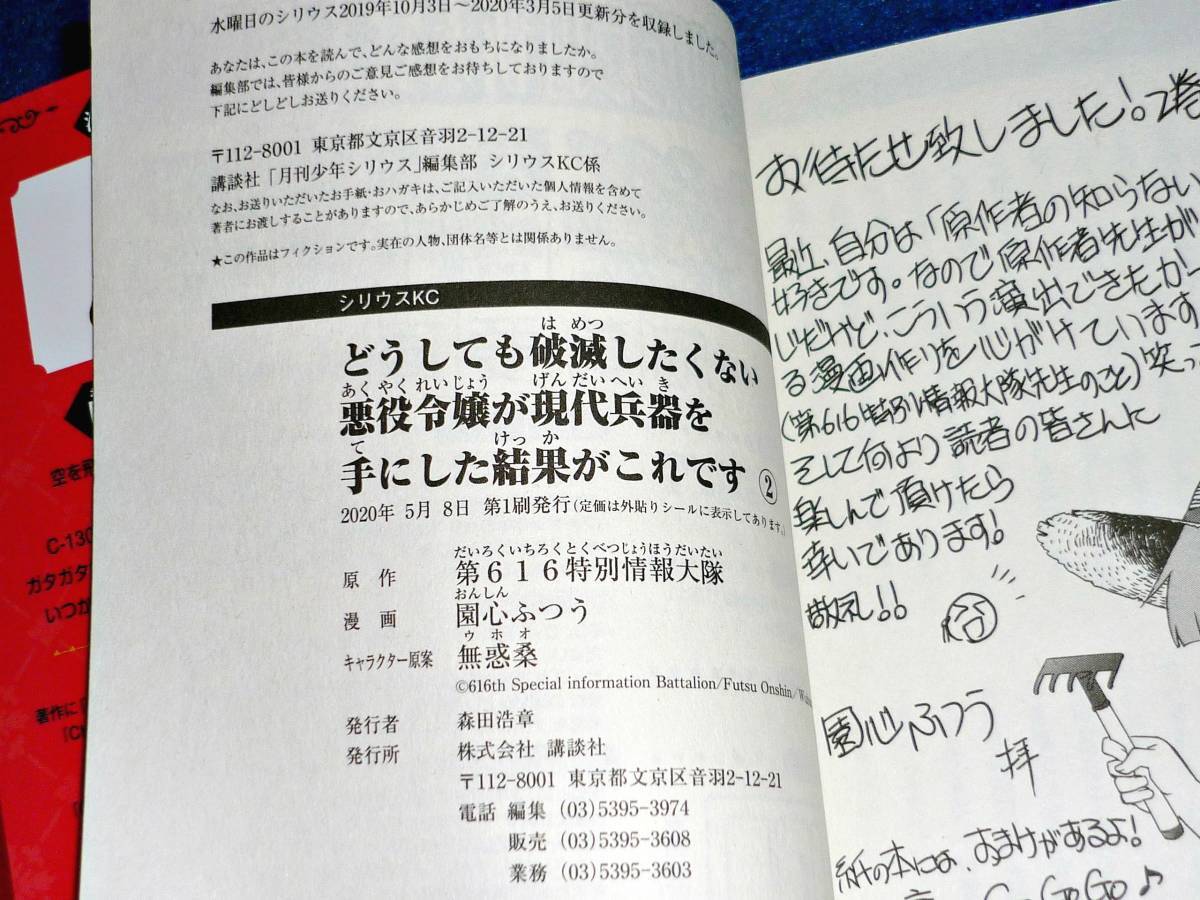 水曜日のシリウス2019年10月3日～2020年3月5日更新分を収録しました。
あなたは、この本を読んで、どんな感想をおもちになりましたか。
編集部では、皆様からのご意見ご感想をお待ちしておりますので
下記にどしどしお送りください。
〒112-8001 東京都文京区音羽2-12-21
講談社「月刊少年シリウス」編集部 シリウスKC係
なお、お送りいただいたお手紙・おハガキは、ご記入いただいた個人情報を含めて
著者にお渡しすることがありますので、あらかじめご了解のうえ、お送りください。
★この作品はフィクションです。実在の人物、団体名等とは関係ありません。
シリウスKC
はめつ
どうしても破滅したくない
あくやくれいじょう げんだいへいき
悪役令嬢が現代兵器を
て けっか
手にした結果がこれです ②
2020年 5月 8日 第1刷発行(定価は外貼りシールに表示してあります。)
だいろくいちろくとくべつじょうほうだいたい
原作 第616特別情報大隊
おんしん
漫画 園心ふつう
ウホオ
キャラクター原案 無惑桑
©616th Special information Battalion/Futsu Onshin/
発行者 森田浩章
発行所 株式会社 講談社
〒112-8001 東京都文京区音羽2-12-21
電話 編集 (03)5395-3974
販売 (03)5395-3608
業務 (03)5395-3603
お待たせ致しました！2巻
最近、自分は「原作者の知らない
好きです。なので原作者先生が
じだけど、こういう演出できたかー
る漫画作りを心がけています
(第616特別情報大隊先生のこと)笑っ
そして何より読者の皆さんに
楽しんで頂けたら
幸いであります！
敬礼！！
園心ふつう
拝
紙の本には、おまけがあるよ！
GoGoGo♪
空を飛
C-130
ガタガタ
いつか
著作に